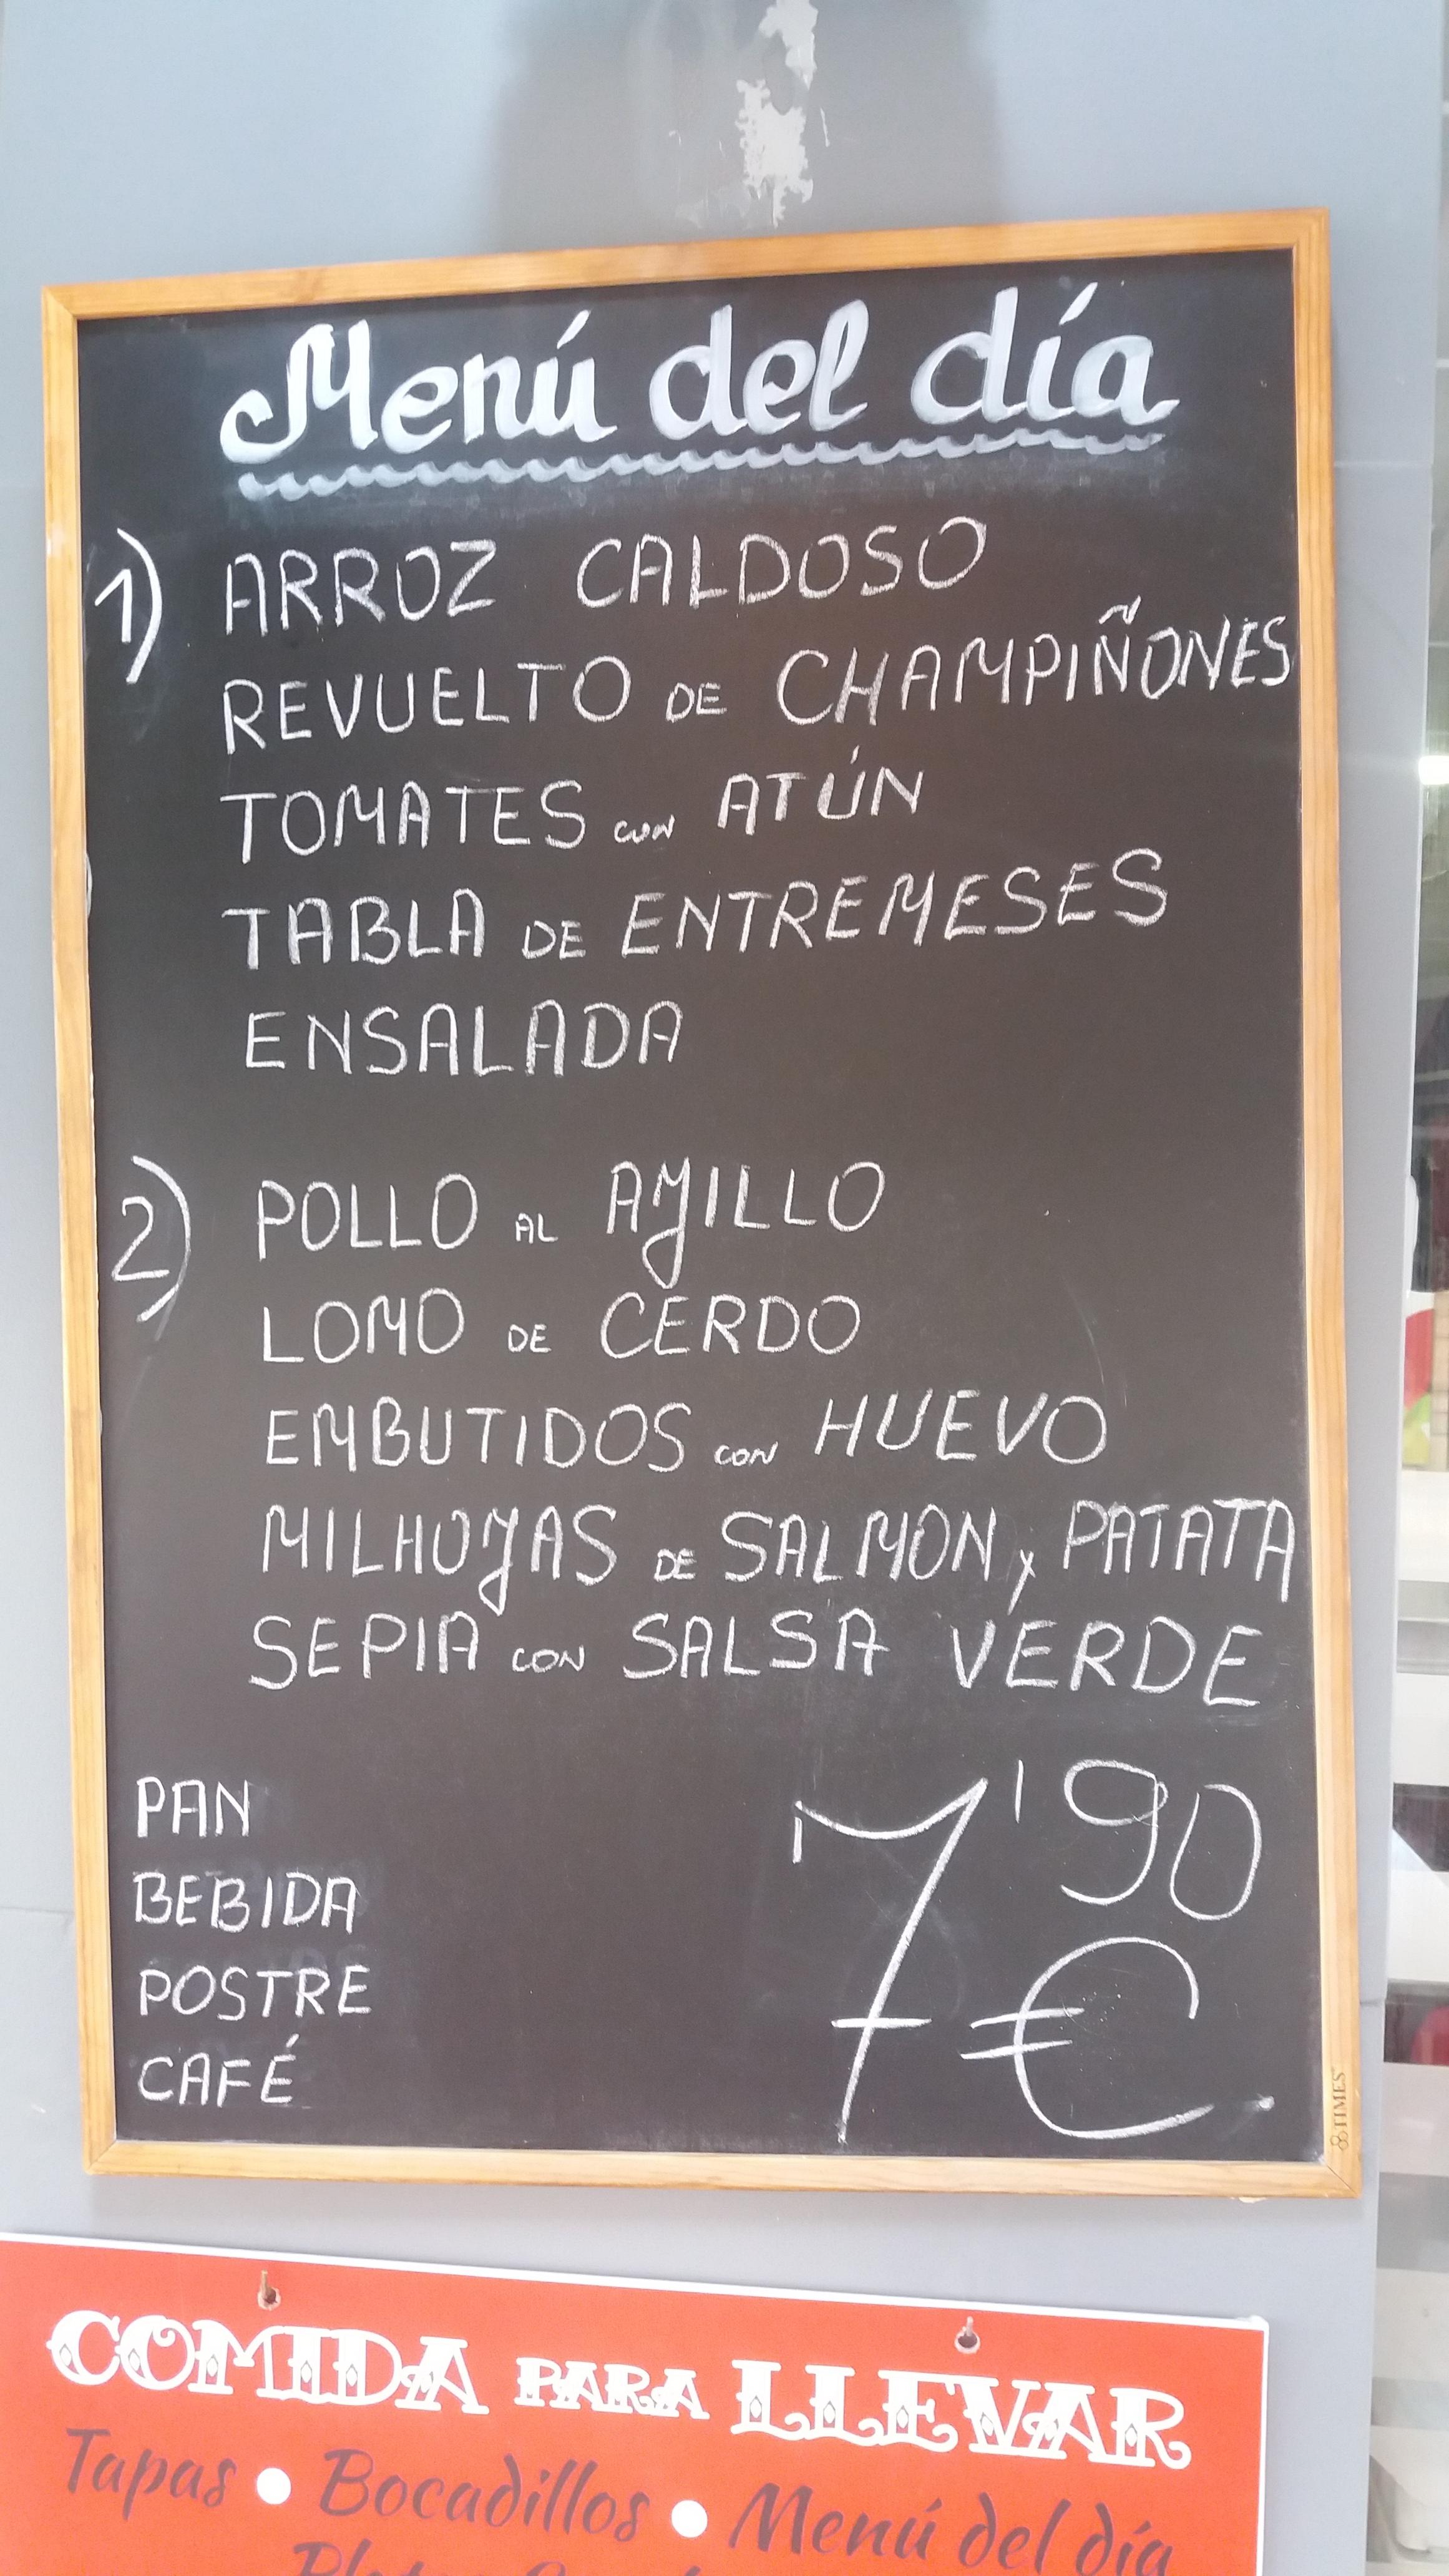 Menú del día
1) ARROZ CALDOSO
REVUELTO DE CHAMPIÑONES
TOMATES CON ATÚN
TABLA DE ENTREMESES
ENSALADA
2) POLLO AL AJILLO
LOMO DE CERDO
EMBUTIDOS CON HUEVO
MILHOJAS DE SALMON y PATATA
SEPIA CON SALSA VERDE
PAN
BEBIDA
POSTRE
CAFÉ
7'90 €
TIMES
COMIDA PARA LLEVAR
Tapas • Bocadillos • Menú del día